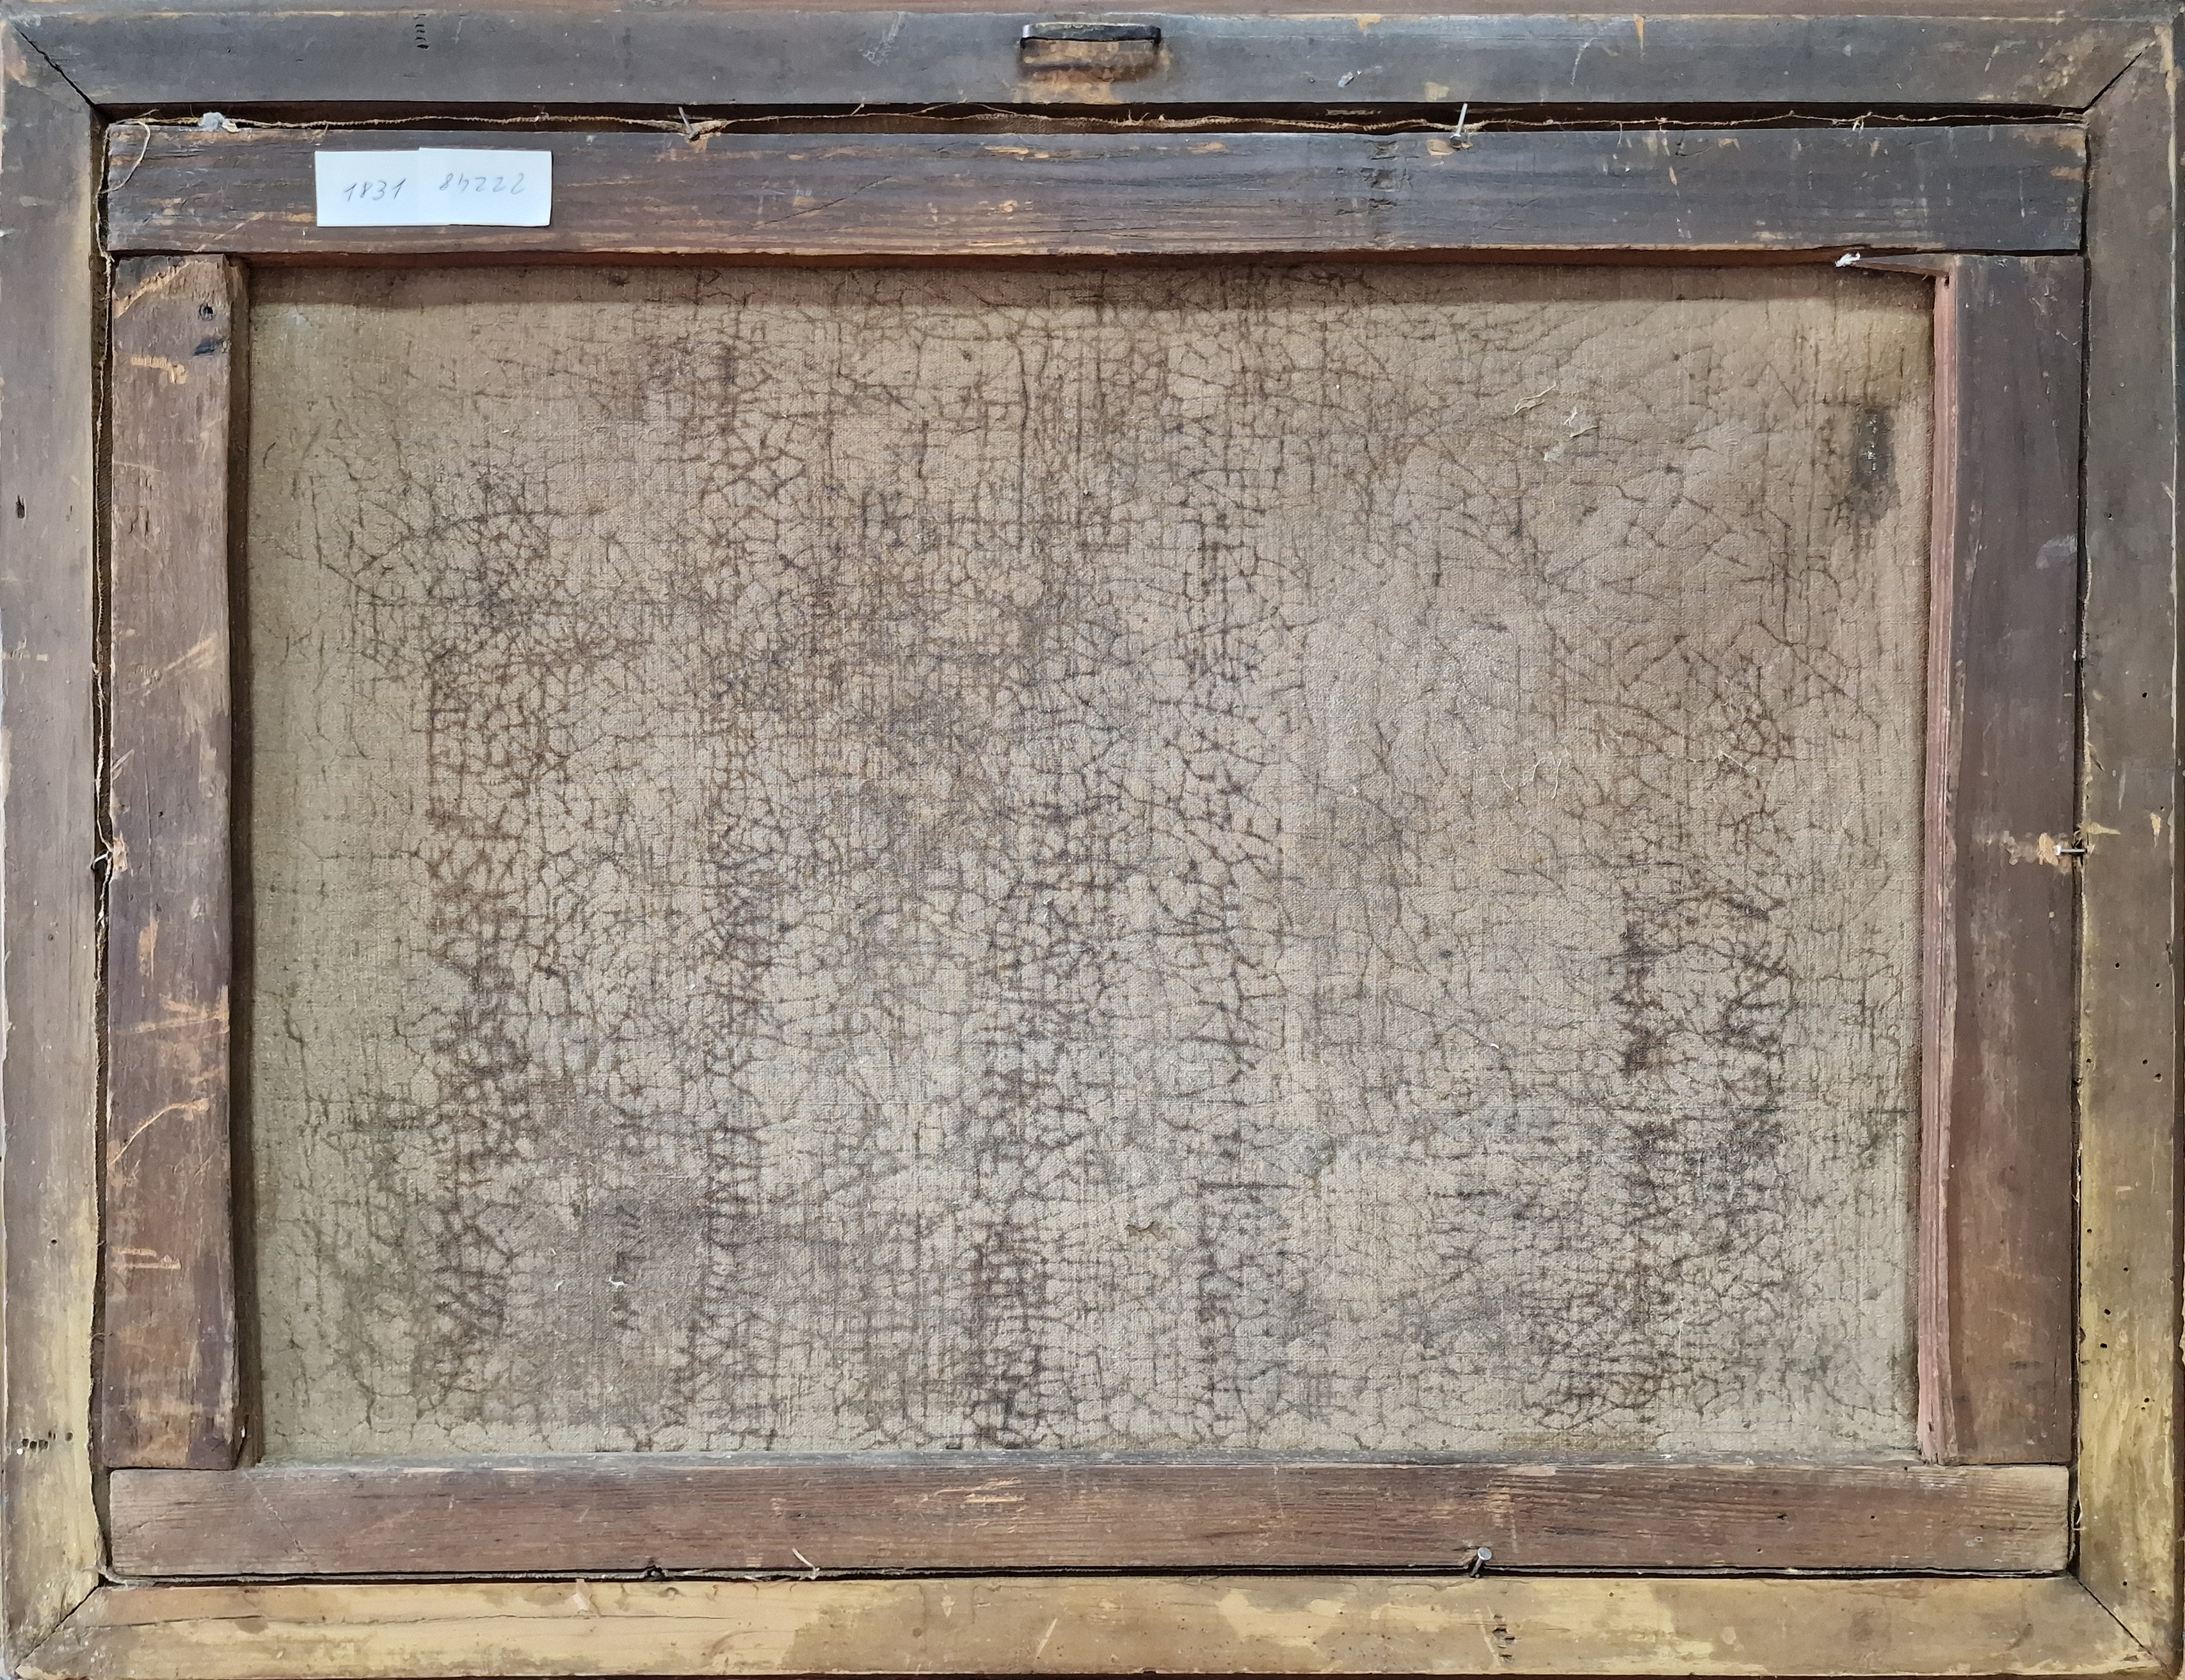 1831 84222